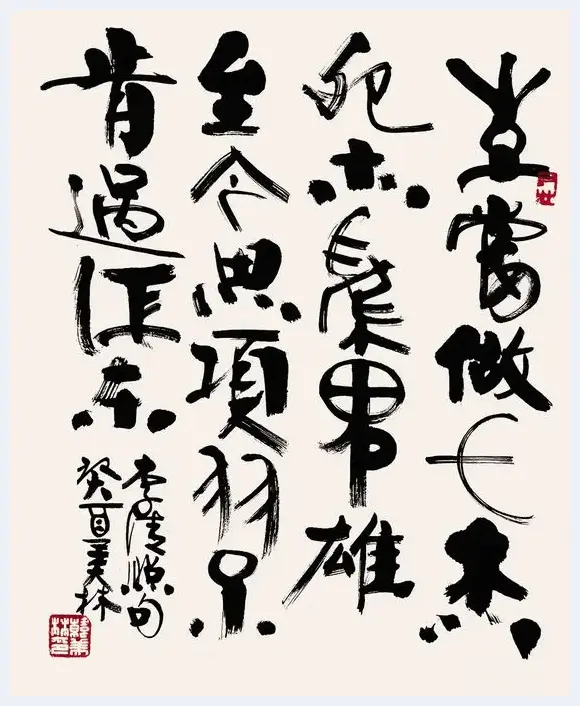 生當做人杰
死亦為鬼雄
至今思項羽不
肯過江東
李清照句
癸酉美林
韓美林印